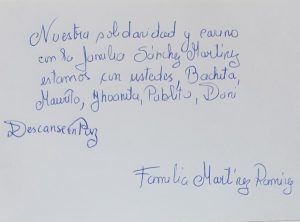 Nuestra solidaridad y cariño
con la familia Sánchez Martínez
estamos con ustedes, Bachita,
Maurito, Jhoanita, Pablito, Dani
Descanse en Paz
Familia Martínez Ramírez